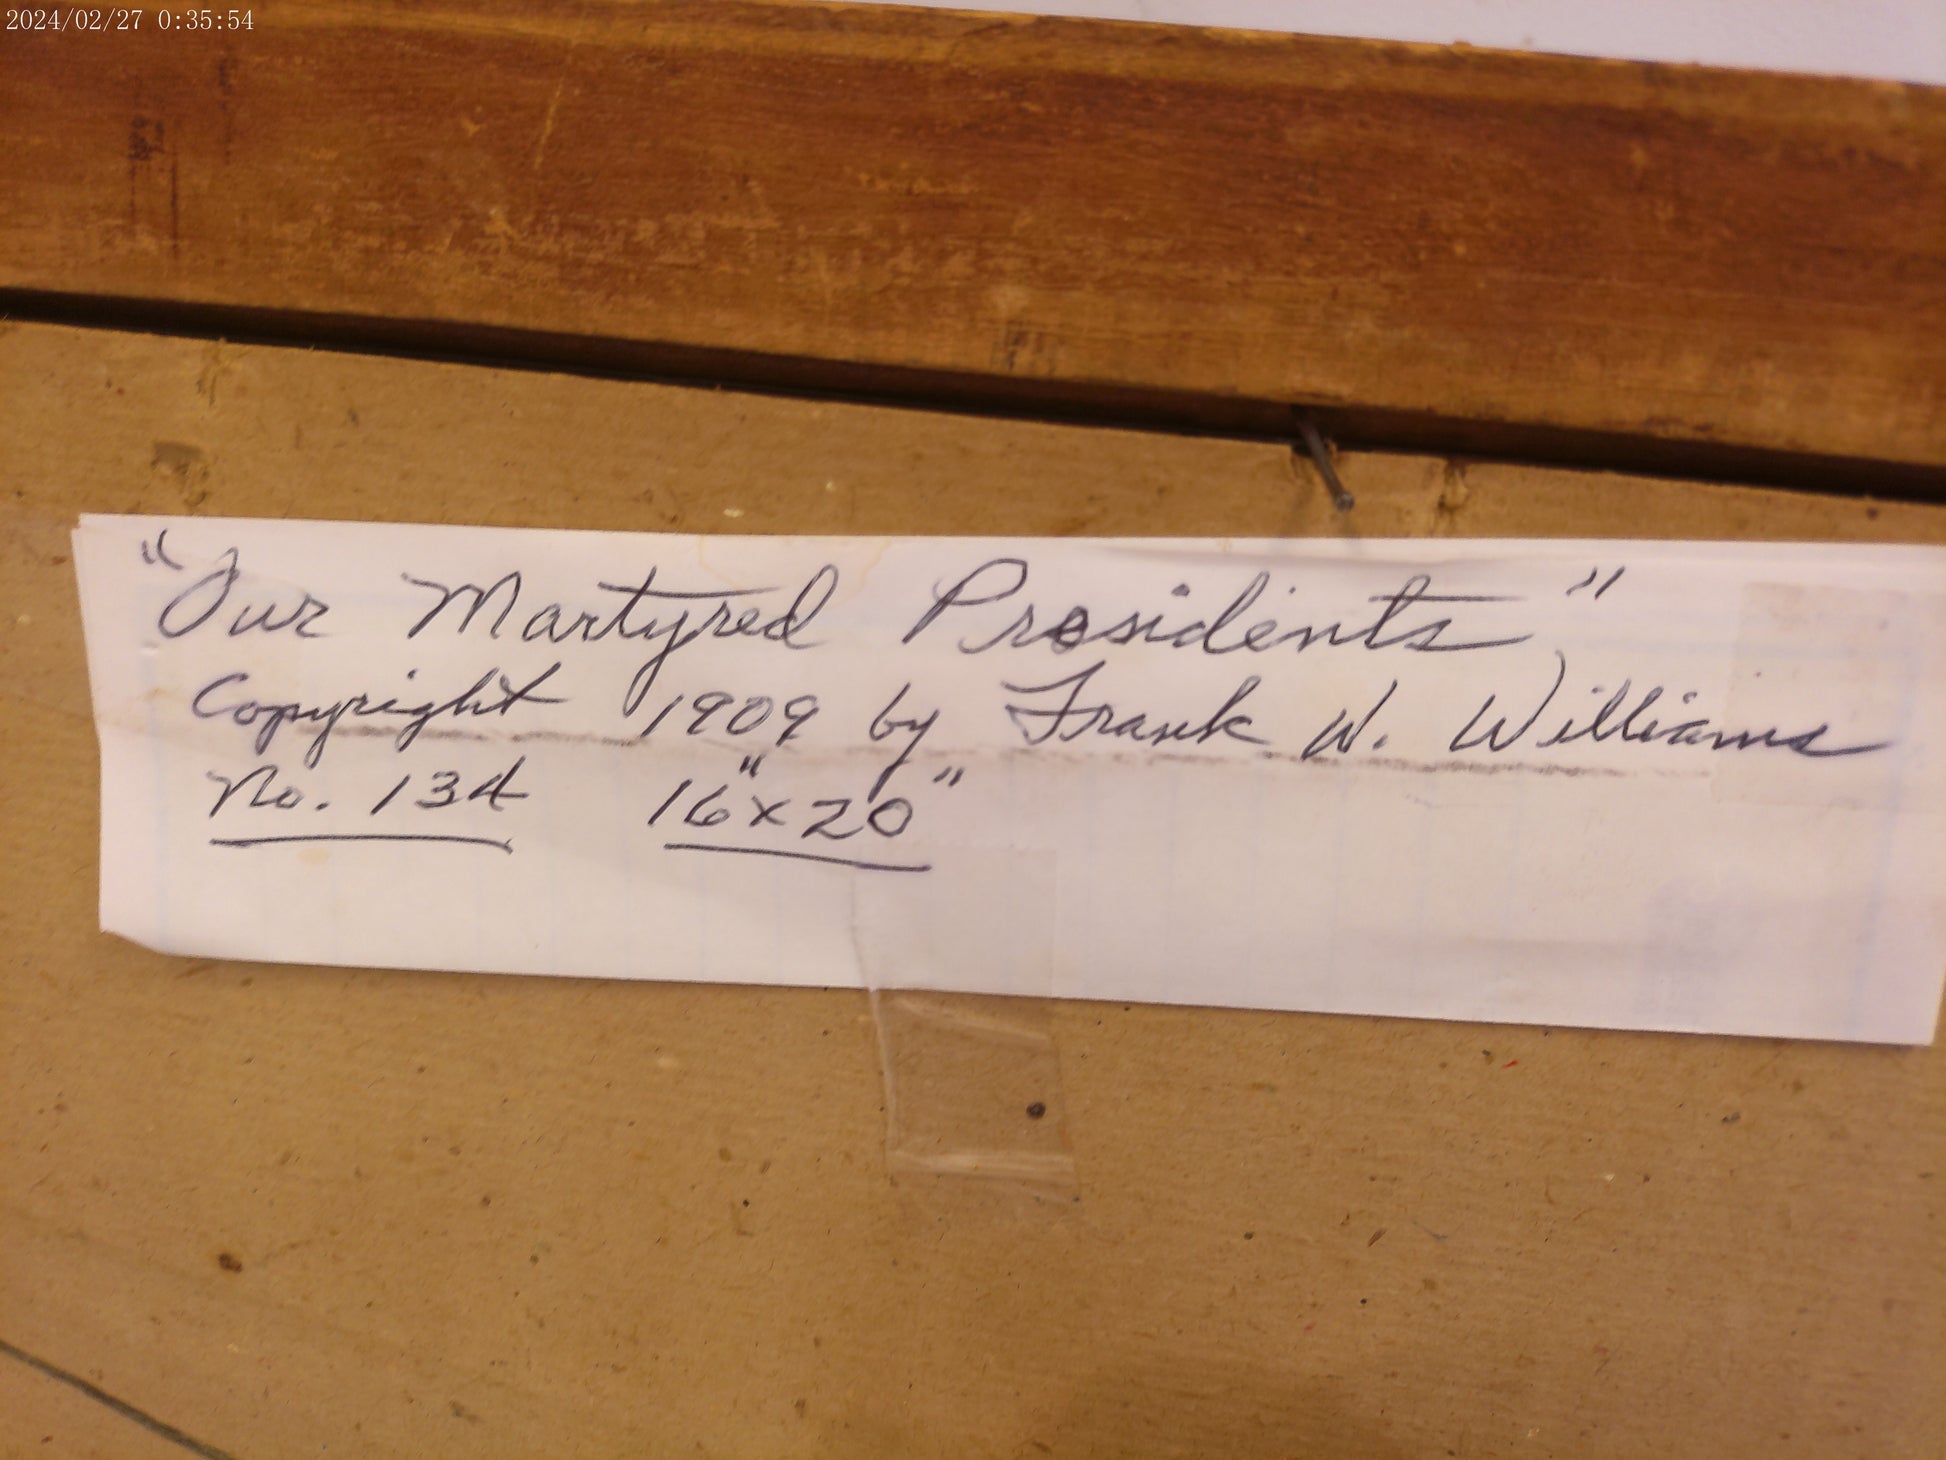 2024/02/27 0:35:54
"Our Martyred Presidents"
Copyright 1909 by Frank W. Williams
No. 134 16"x20"